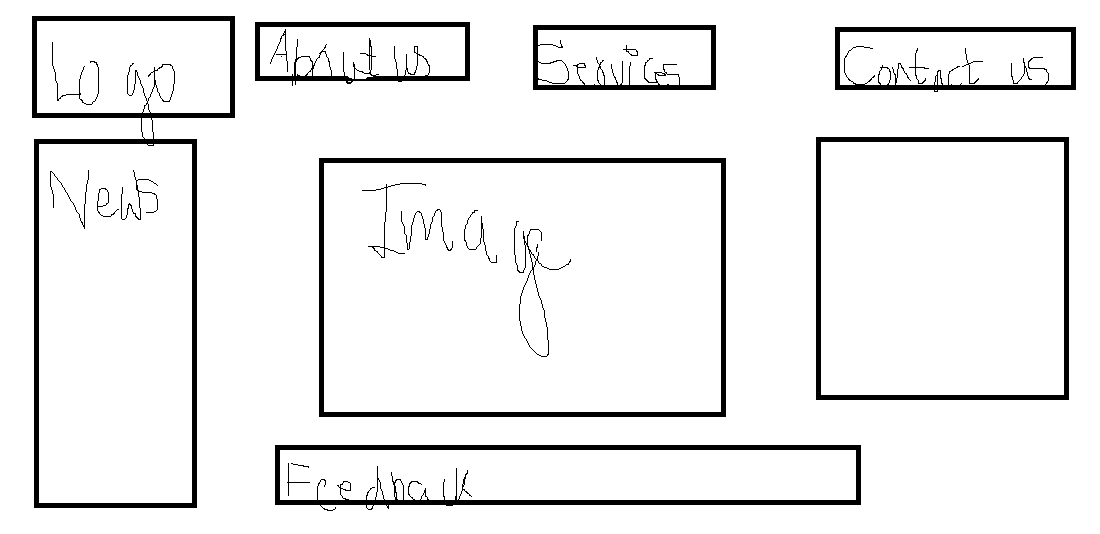 Logo
About us
Services
Contact us
News
Image
Feedback